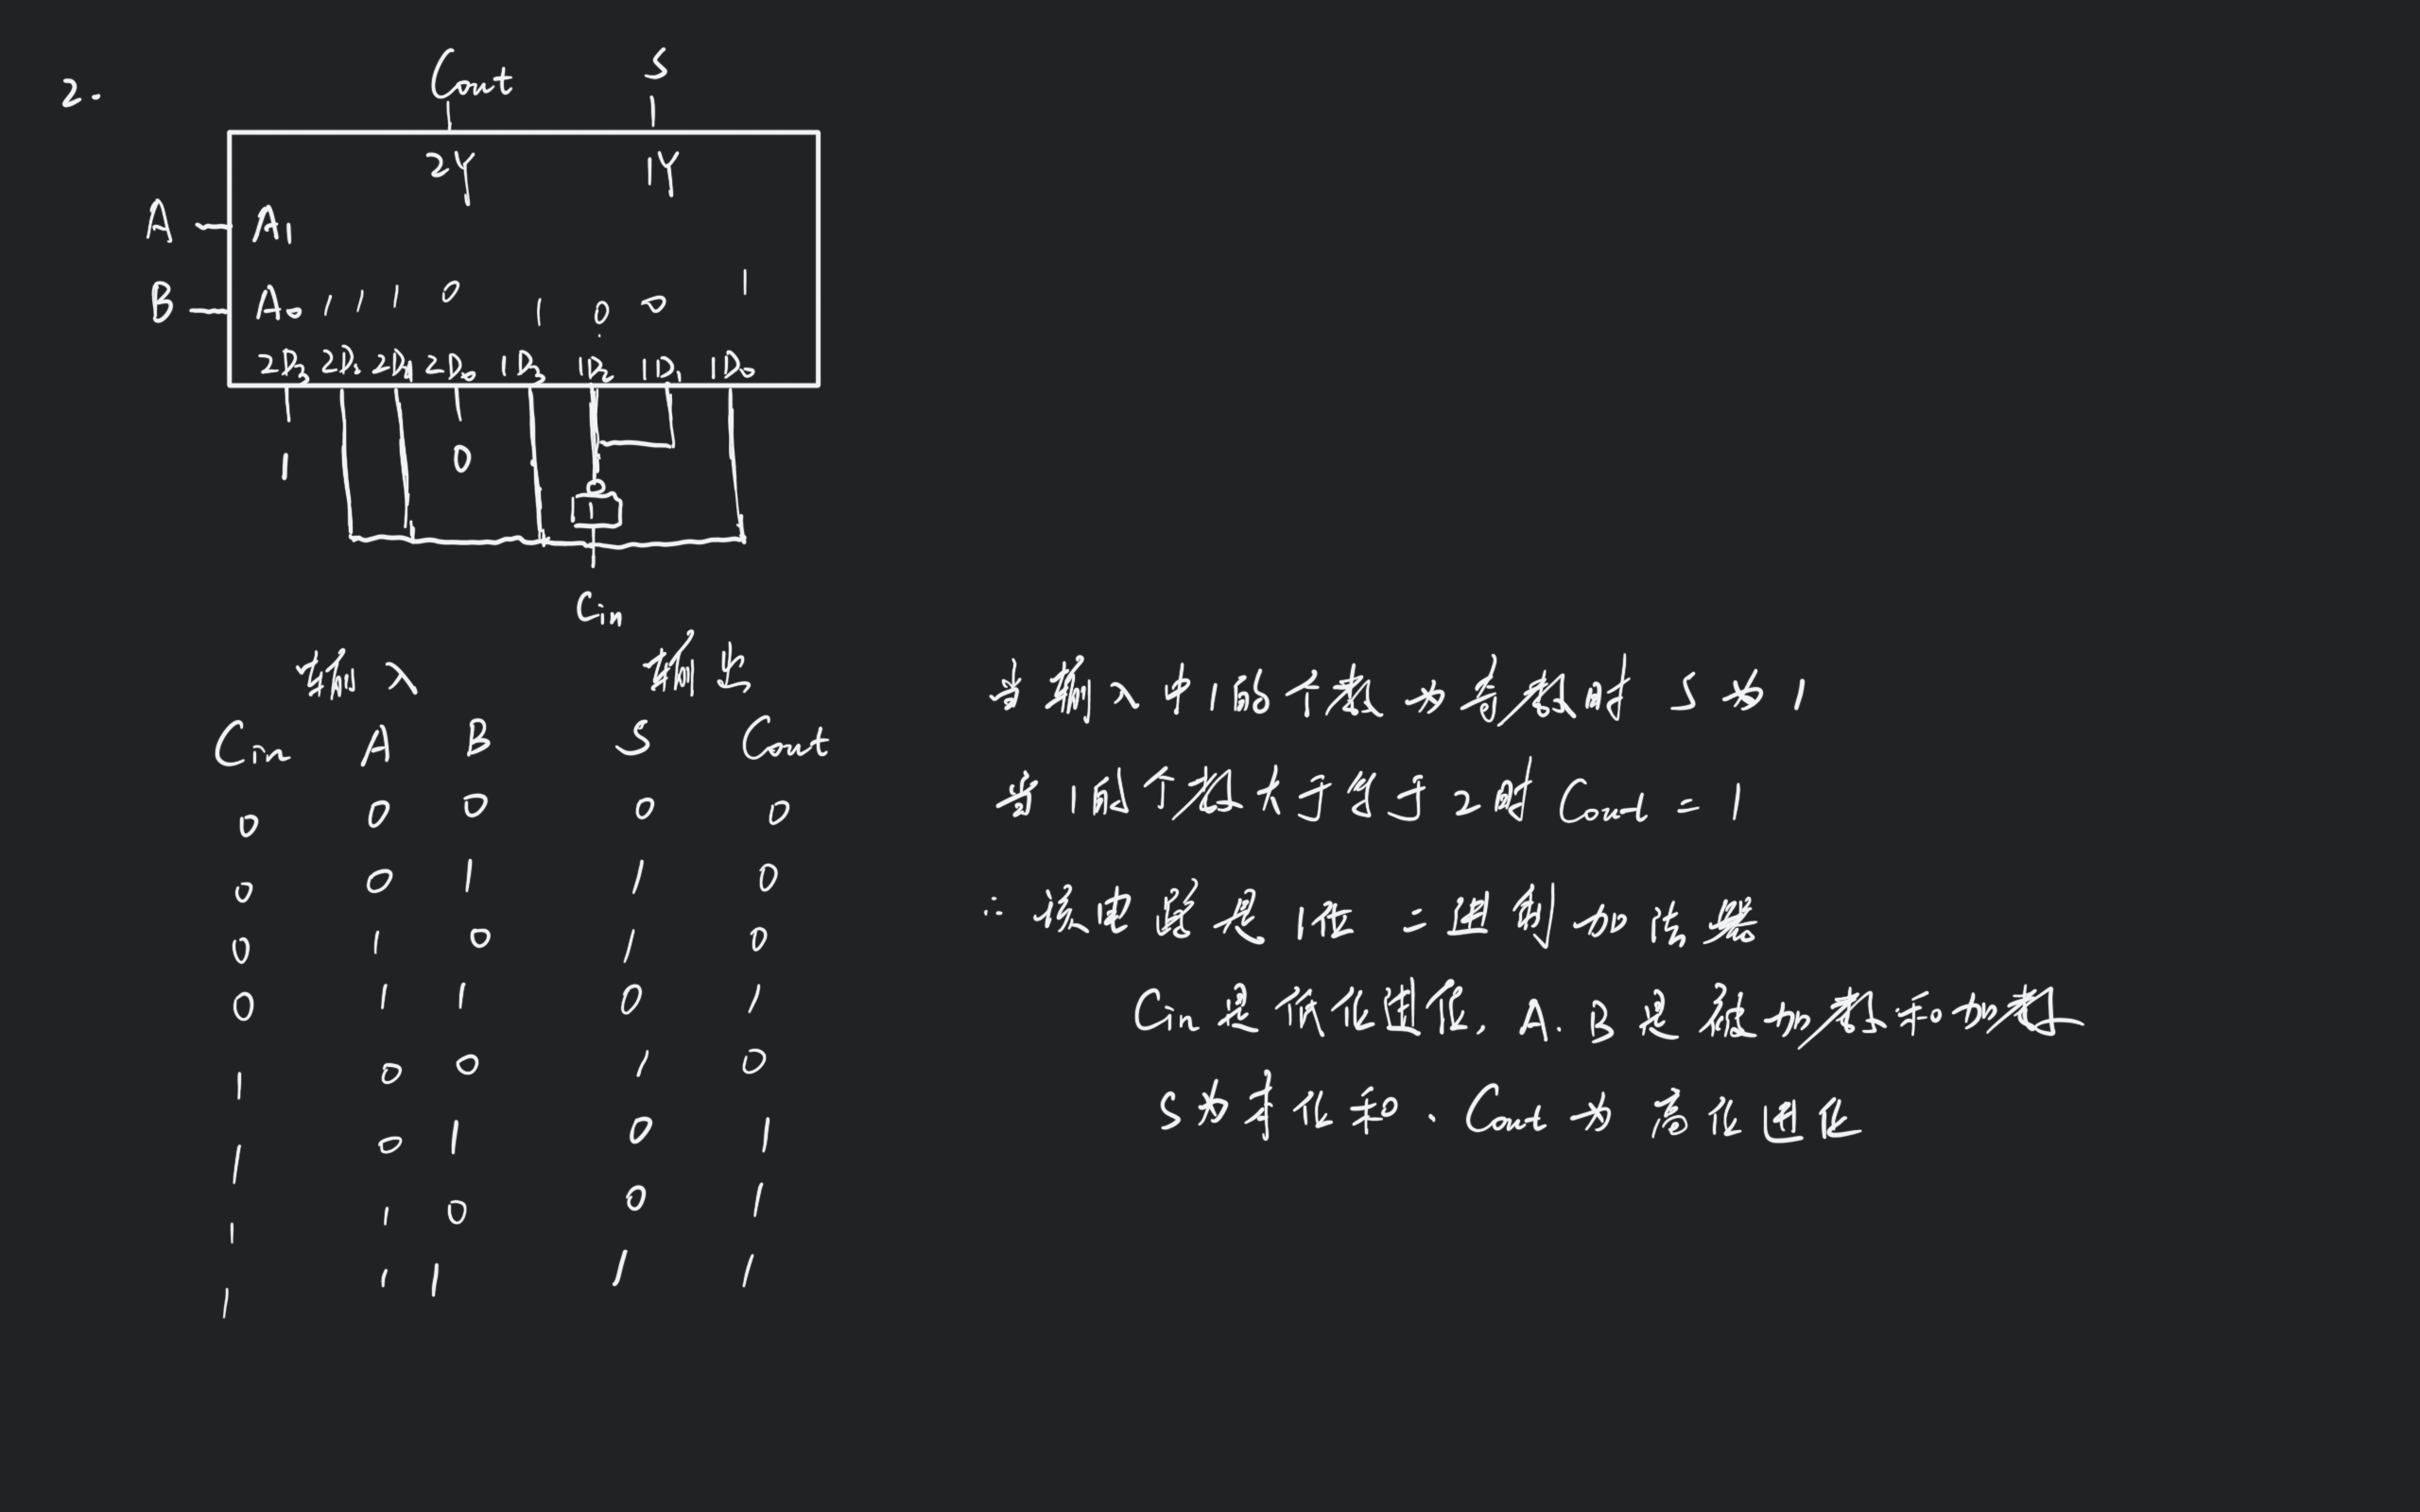 2.
Cout S
2Y 1Y
A A₁
B A₀ 1 1 1 0 1 0 0 1
2D₃ 2D₂ 2D₁ 2D₀ 1D₃ 1D₂ 1D₁ 1D₀
1 0
1
Cin
输入 输出
Cin A B S Cout
0 0 0 0 0
0 0 1 1 0
0 1 0 1 0
0 1 1 0 1
1 0 0 1 0
1 0 1 0 1
1 1 0 0 1
1 1 1 1 1
当输入中1的个数为奇数时 S为1
当1的个数大于等于2时 Cout = 1
∴该电路是1位二进制加法器
Cin是低位进位, A.B是被加数和加数
S为本位和、Cout为高位进位